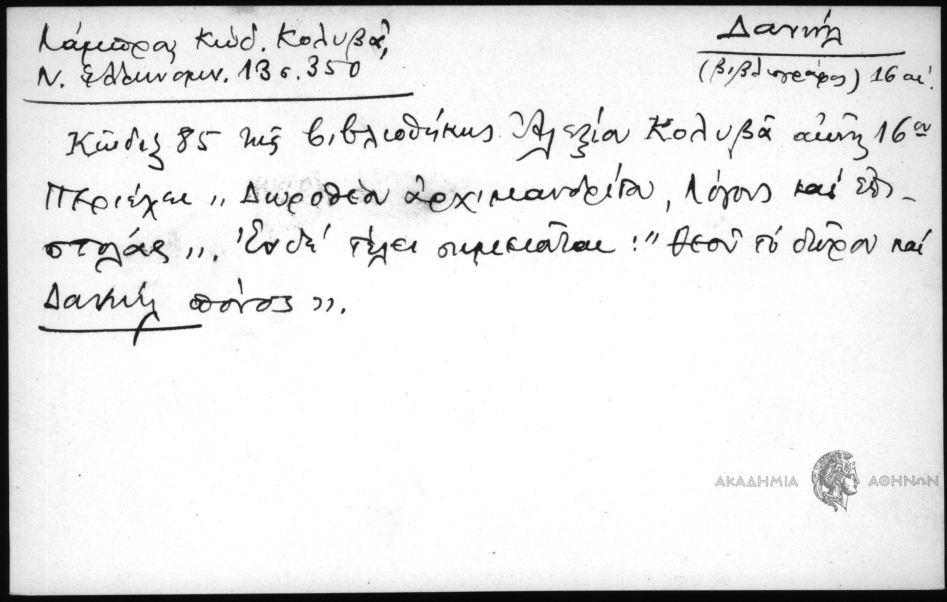 Λάμπρος Κώδ. Κολυβᾶ,
Ν. Ἑλληνομν. 13 σ. 350
Δανιήλ
(βιβλιογράφος) 16 αἰ.
Κῶδιξ 85 τῆς βιβλιοθήκης Ἀλεξίου Κολυβᾶ 16ου
Περιέχει „ Δωροθέου ἀρχιμανδρίτου, Λόγους καὶ ἐπι-
στολάς ”. Ἐν δὲ τέλει σημειοῦται : " Θεοῦ τὸ δῶρον καὶ
Δανιήλ πόνος ”.
ΑΚΑΔΗΜΙΑ ΑΘΗΝΩΝ